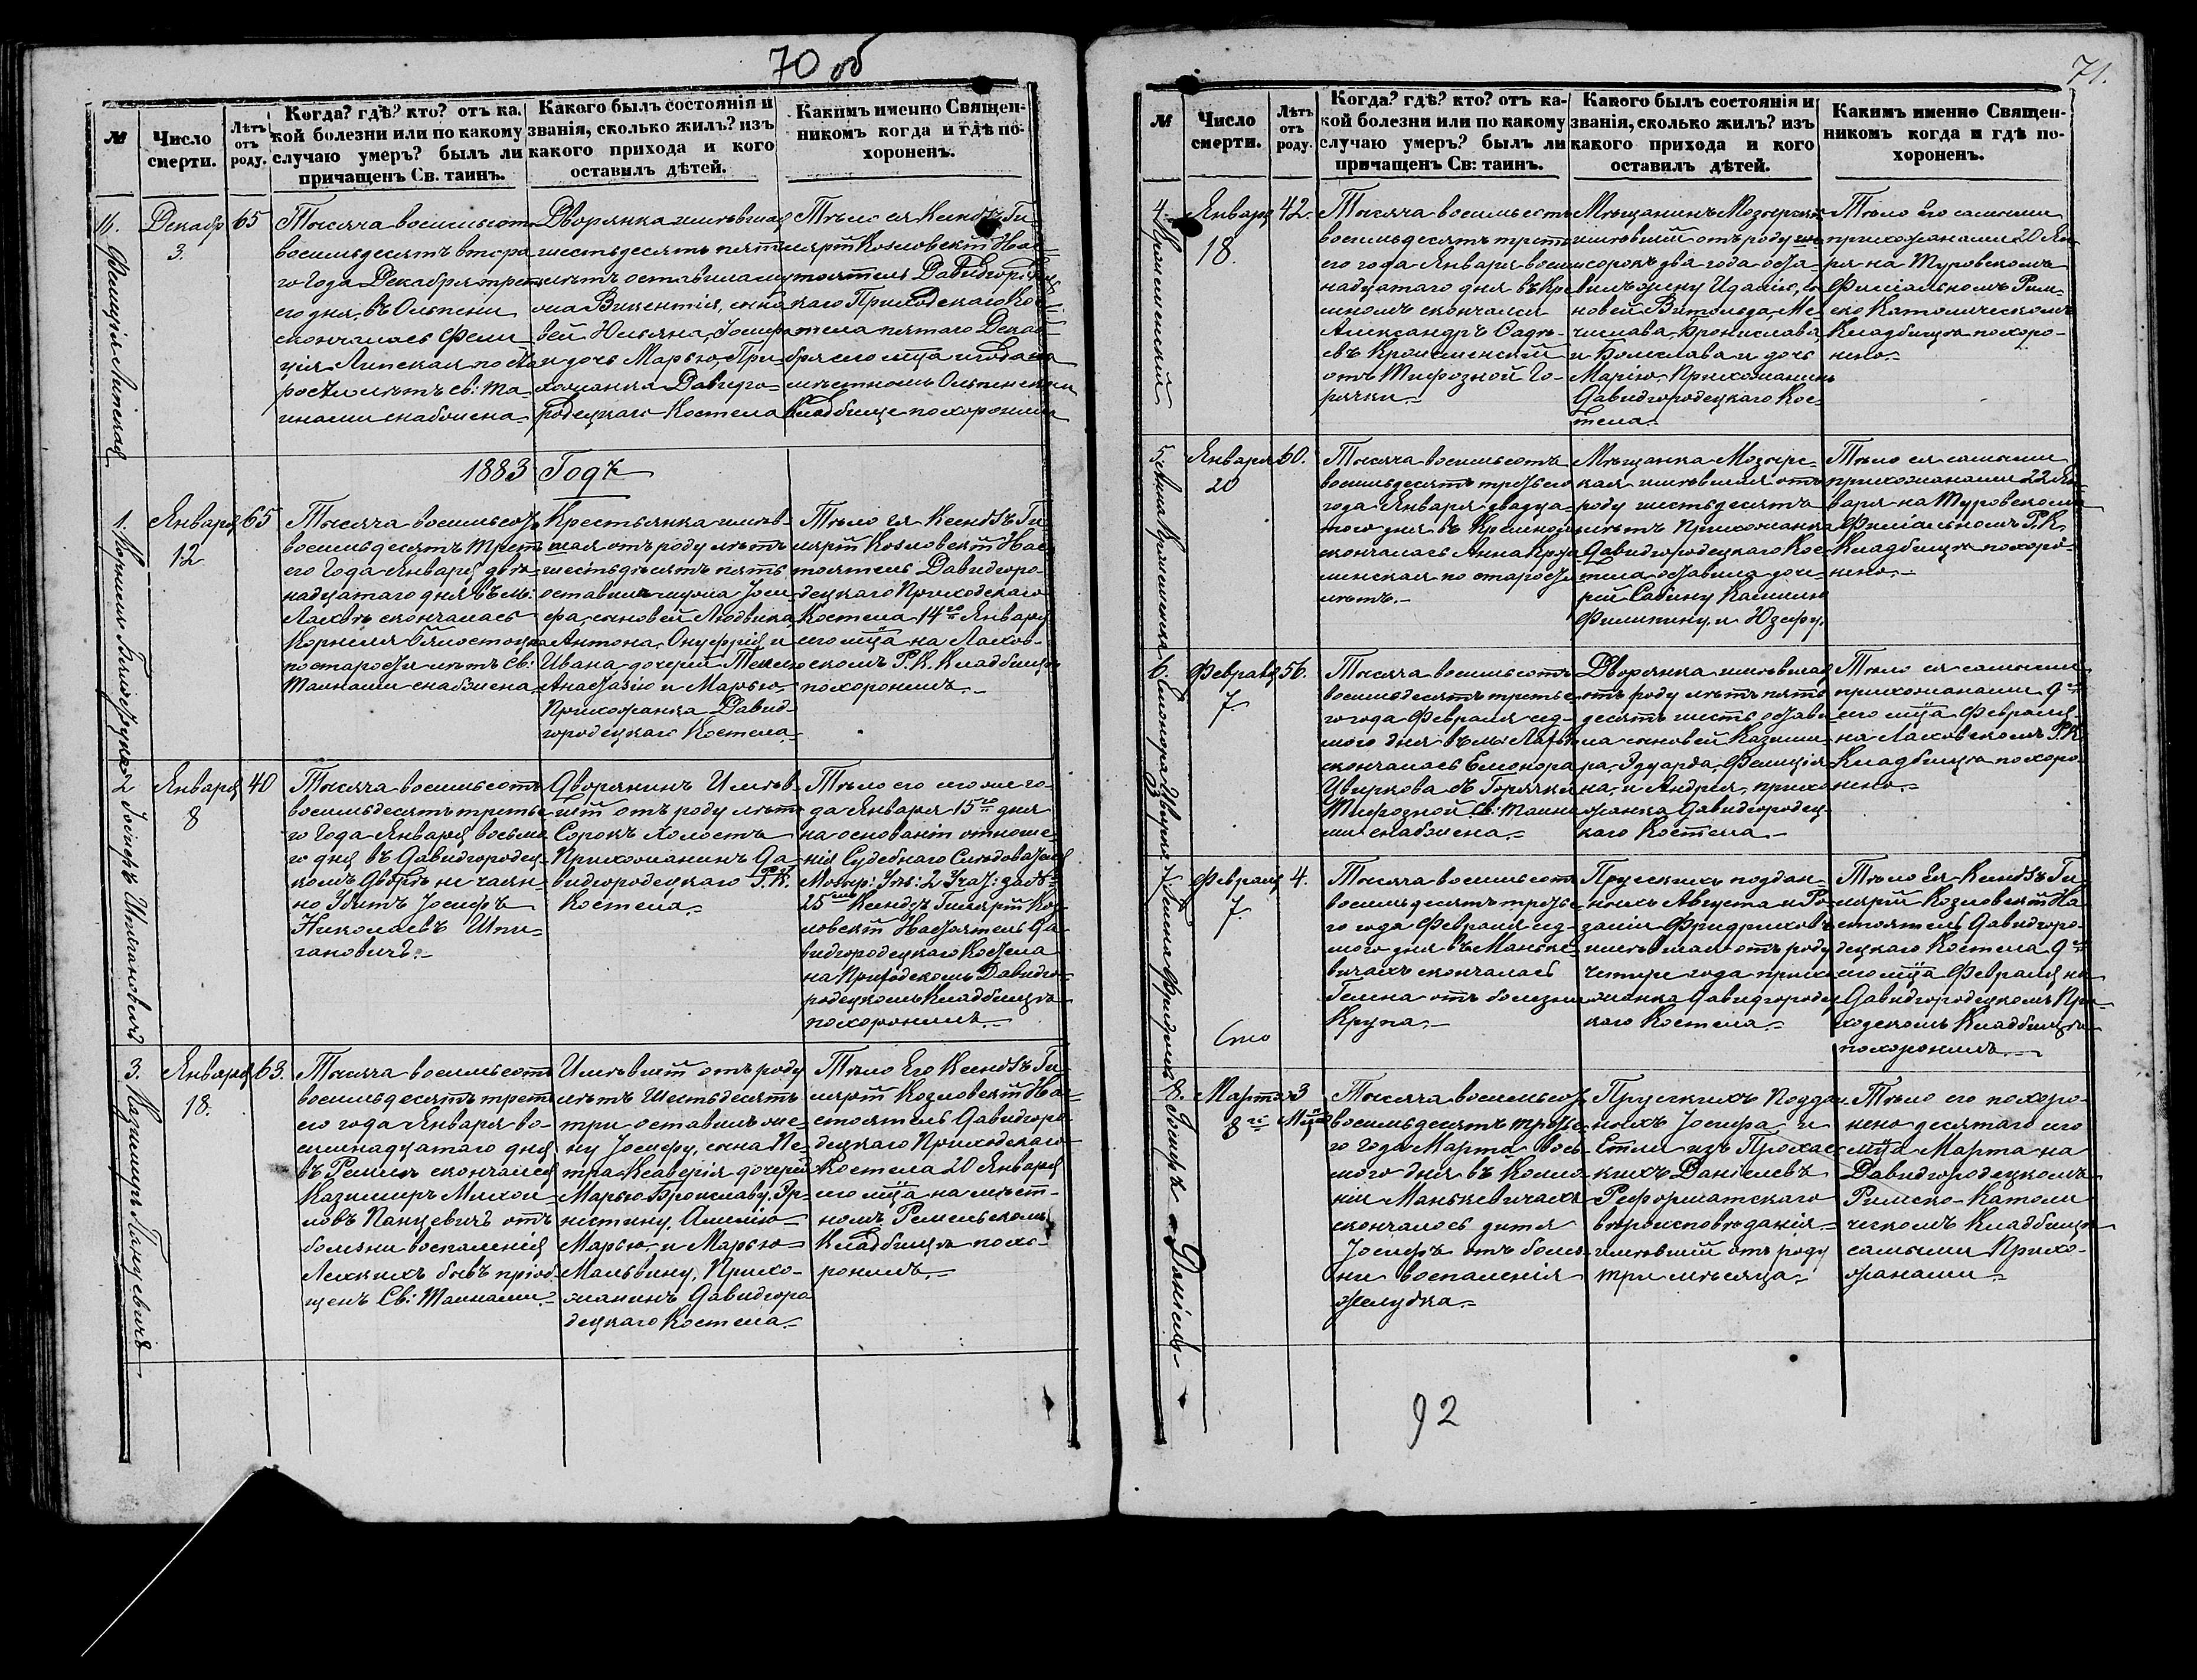 70 об
№
Число смерти.
Лѣтъ отъ роду.
Когда? гдѣ? кто? отъ ка-
кой болезни или по какому
случаю умеръ? былъ ли
причащенъ Св. таинъ.
Какого былъ состоянія и
званія, сколько жилъ? изъ
какого прихода и кого
оставилъ дѣтей.
Какимъ именно Священ-
никомъ когда и гдѣ по-
хороненъ.
16. Фелиція Липская
Декабр
3.
65
Тысяча восемьсотъ
восемьдесятъ втора
го Года Декабря трет
его дня, въ Ольпени
скончалась Фели
ція Липская по ста
рости лѣтъ св: та-
инами снабжена
Дворянка имѣвшая
шестьдесятъ пять
лѣтъ оставила му
жа Викентія, сыно
вей Юльяна, Іосифа
и дочь Марью, При-
хожанка Давидго-
родецкаго Костела
Тѣло ея Ксендзъ Ги
лярій Козловскій Нас
тоятель Давидгородец
каго Приходскаго Кос
тела пятаго Декаб
бря сего мца и года на
мѣстномъ Ольпенскомъ
кладбище похоронилъ
1883 Годъ
1. Корнеля Бялостоцкая
Января
12
65
Тысяча восемьсотъ
восемьдесятъ трет
его Года Января двѣ-
надцатаго дня въ м:
Лахвѣ скончалась
Корнеля Бялостоцка
по старости лѣтъ Св:
Таинами снабжена
Крестьянка имѣв-
шая отъ роду лѣтъ
шестьдесятъ пять
оставила мужа Іоси-
фа, сыновей Людвика,
Антона, Онуфрія и
Ивана дочерей Теклю
Анастазію и Марью.
Прихожанка Давид-
городецкаго Костела
Тѣло ея Ксендзъ Ги
лярій Козловскій Нас
тоятель Давидгоро-
децкаго Приходскаго
Костела 14го Января
сего мца на Лахов-
скомъ Р. К. Кладбищѣ
похоронилъ.
2 Іосифъ Шпигановичъ
Января
8
40
Тысяча восемьсотъ
восемьдесятъ третье
го Года Января восьма
го дня въ Давидгородец-
комъ Дворѣ не чаян-
но Убитъ Іосифъ
Николаевъ Шпи-
гановичъ.
Дворянинъ Имѣв-
шій отъ роду лѣтъ
Сорокъ холостъ
Прихожанинъ Да
видгородецкаго Р. К.
Костела.
Тѣло его сего же го-
да Января 15го дня
на основаніи отноше
нія Судебнаго Слѣдователя
Мозыр: Уѣз: 2 Участ: за №
25 Ксендзъ Гилярій Коз
ловскій Настоятель Да-
видгородецкаго Костела
на Приходскомъ Давидго-
родецкомъ Кладбищѣ
похоронилъ.
3. Казимиръ Панцевичъ
Января
18.
63.
Тысяча восемьсотъ
восемьдесятъ треть
его года Января во-
семнадцатаго дня
въ Ремлѣ скончался
Казимиръ Михаи
ловъ Панцевичъ отъ
болѣзни воспаленія
Легкихъ бывъ пріоб-
щенъ Св: Таинами.
Имѣвшій отъ роду
лѣтъ Шестьдесятъ
три оставилъ же-
ну Іосифу, сына Пе-
тра-Ксаверія дочерей
Марью-Брониславу, Эр-
нестину, Амелію
Марью, и Марью
Мальвину, Прихо-
жанинъ Давидгоро
децкаго Костела.
Тѣло Его Ксендзъ Ги
лярій Козловскій На-
стоятель Давидгоро-
децкаго Приходскаго
Костела 20 Января
сего мца на мѣст-
номъ Ремельскомъ
Кладбищѣ похо-
ронилъ.
71.
№
Число
смерти.
Лѣтъ
отъ
роду.
Когда? гдѣ? кто? отъ ка-
кой болезни или по какому
случаю умеръ? былъ ли
причащенъ Св: таинъ.
Какого былъ состоянія и
званія, сколько жилъ? изъ
какого прихода и кого
оставилъ дѣтей.
Какимъ именно Священ-
никомъ когда и гдѣ по-
хороненъ.
4. Кроменскій
Января
18.
42.
Тысяча восемьсотъ
восемьдесятъ треть
его года Января восем
надцатаго дня въ Кре
скончался
Александръ
въ Кроменскій
отъ Тифозной Го-
рячки.
Мѣщанинъ Мозырскій
имѣвшій отъ роду
сорокъ два года оста-
вилъ жену Идалію, сы
новей Витольда, Ме
числава, Бронислава,
и Болеслава и дочь
Марію, Прихожанинъ
Давидгородецкаго Кос-
тела.
Тѣло Его самыми
прихожанами 20 Ян
ря на Туровскомъ
Филіальномъ Рим-
ско Католическомъ
Кладбищѣ похоро-
нено.
5. Анна Кроменская
Января
20
60.
Тысяча восемьсотъ
восемьдесятъ третьего
года Января двадца-
таго дня въ
скончалась Анна Кро
менская по старости
лѣтъ.
Мѣщанка Мозырс-
кая имѣвшая отъ
роду шестьдесятъ
лѣтъ Прихожанка
Давидгородецкаго Кос-
тела оставила доче-
рей Сабину Камилю
Филипину и Юзефу.
Тѣло ея самыми
прихожанами 22 Ян-
варя на Туровскомъ
Филіальномъ Р. К.
Кладбищѣ похоро-
нено.
6. Елеонора Цвиркова
Февраля
7
56.
Тысяча восемьсотъ
восемьдесятъ третье
го года Февраля сед-
мого дня въ м: Лахвѣ
скончалась Елеонора
Цвиркова съ Горячки
Тифозной Св: Таина
ми снабжена.
Дворянка имѣвшая
отъ роду лѣтъ пять
десятъ шесть остави
ла сыновей Казими-
ра, Эдуарда, Фелиція
на, и Андрея, прихо
жанка Давидгородец-
каго Костела.
Тѣло ея самыми
прихожанами 9го
сего мца Февраля
на Лаховскомъ Р. К.
Кладбищѣ похоро
нено.
7. Гелена Фридрихъ
Февраля
7.
4.
Тысяча восемьсотъ
восемьдесятъ третье
го года Февраля сед-
мого дня въ Маньке-
вичахъ скончалась
Гелена отъ болезни
Крупа.
Прусскихъ поддан-
ныхъ Августа и Ро-
заліи Фридриховъ
имѣвшая отъ роду
четыре года прихо
жанка Давидгородец
каго Костела.
Тѣло Ея Ксендзъ Ги-
лярій Козловскій На
стоятель Давидгоро-
децкаго Костела 9го
сего мца Февраля на
Давидгородецкомъ При-
ходскомъ Кладбищѣ
похоронилъ.
8. Іосифъ Даніель
Марта
8го
3
Мца
Тысяча восемьсотъ
восемьдесятъ третье
го Года Марта вось-
мого дня въ Коло-
ніи Манькевичахъ
скончалось дитя
Іосифъ отъ болѣз-
ни воспаленія
желудка.
Прусскихъ Поддан
ныхъ Іосифа и
изъ
Даніелевъ
Реформатскаго
вѣроисповѣданія
имѣвшій отъ роду
три мѣсяца
Тѣло его похоро-
нено десятаго сего
мца Марта на
Давидгородецкомъ
Римско-Католи
ческомъ Кладбищѣ
самыми Прихо-
жанами
92